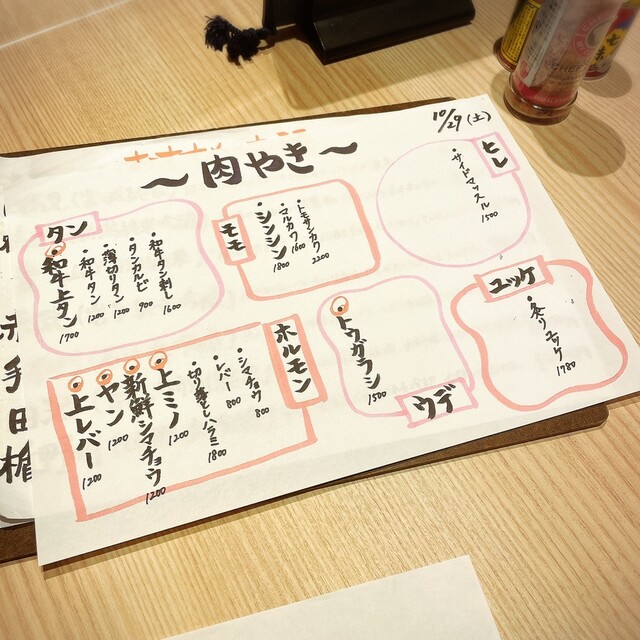 10/29(土)
〜肉やき〜
タン
和牛上タン 1700
・和牛タン 1200
・薄切りタン 1200
・タンカルビ 900
・和牛タン刺し 1600
モモ
・シンシン 1800
・マルカワ 1600
・トモサンカク 2200
ヒレ
・サイドマッスル 1500
ホルモン
上レバー 1200
ヤン 1200
新鮮シマチョウ 1200
上ミノ 1200
・切り落としハラミ 1800
・レバー 800
・シマチョウ 800
ウデ
トウガラシ 1500
ユッケ
・炙りユッケ 1780